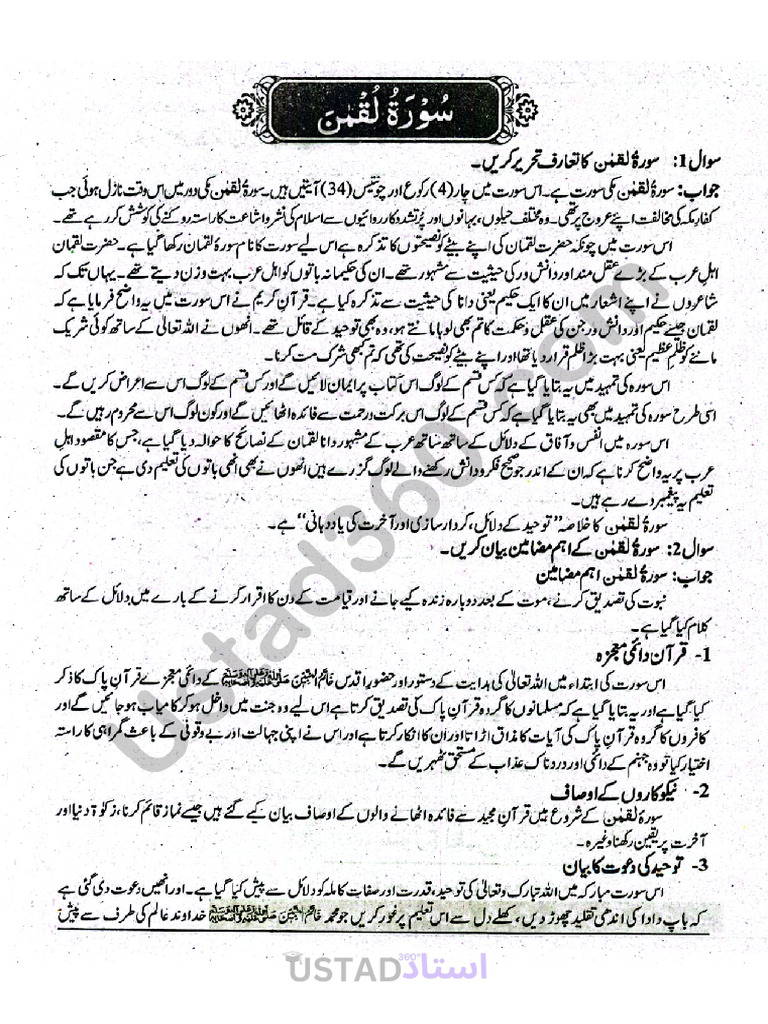 سُوْرَةُ لُقْمٰنَ
سوال 1: سورۂ لقمٰن کا تعارف تحریر کریں۔
جواب: سورۂ لقمٰن مکی سورت ہے۔ اس سورت میں چار (4) رکوع اور چونتیس (34) آیتیں ہیں۔ سورۂ لقمٰن مکی دور میں اس وقت نازل ہوئی جب
کفارِ مکہ کی مخالفت اپنے عروج پر تھی۔ وہ مختلف حیلوں، بہانوں اور پُرتشدد کارروائیوں سے اسلام کی نشر و اشاعت کا راستہ روکنے کی کوشش کر رہے تھے۔
اس سورت میں چونکہ حضرت لقمان کی اپنے بیٹے کو نصیحتوں کا تذکرہ ہے اس لیے سورت کا نام سورۂ لقمان رکھا گیا ہے۔ حضرت لقمان
اہلِ عرب کے بڑے عقل مند اور دانش ور کی حیثیت سے مشہور تھے۔ ان کی حکیمانہ باتوں کو اہل عرب بہت وزن دیتے تھے۔ یہاں تک کہ
شاعروں نے اپنے اشعار میں ان کا ایک حکیم یعنی دانا کی حیثیت سے تذکرہ کیا ہے۔ قرآنِ کریم نے اس سورت میں یہ واضح فرمایا ہے کہ
لقمان جیسے حکیم اور دانش ور جن کی عقل و حکمت کا تم بھی لوہا مانتے ہو، وہ بھی توحید کے قائل تھے۔ انھوں نے اللہ تعالیٰ کے ساتھ کوئی شریک
ماننے کو ظلمِ عظیم یعنی بہت بڑا ظلم قرار دیا تھا اور اپنے بیٹے کو نصیحت کی تھی کہ تم بھی شرک مت کرنا۔
اس سورہ کی تمہید میں یہ بتایا گیا ہے کہ کس قسم کے لوگ اس کتاب پر ایمان لائیں گے اور کس قسم کے لوگ اس سے اعراض کریں گے۔
اسی طرح سورہ کی تمہید میں بھی یہ بتایا گیا ہے کہ کس قسم کے لوگ اس برکت و رحمت سے فائدہ اٹھائیں گے اور کون لوگ اس سے محروم رہیں گے۔
اس سورہ میں انفس و آفاق کے دلائل کے ساتھ ساتھ عرب کے مشہور دانا لقمان کے نصائح کا حوالہ دیا گیا ہے، جس کا مقصود اہلِ
عرب پر یہ واضح کرنا ہے کہ ان کے اندر جو صحیح فکر و دانش رکھنے والے لوگ گزرے ہیں انھوں نے بھی انھی باتوں کی تعلیم دی ہے جن باتوں کی
تعلیم یہ پیغمبر دے رہے ہیں۔
سورۂ لقمٰن کا خلاصہ ”توحید کے دلائل، کردار سازی اور آخرت کی یاد دہانی“ ہے۔
سوال 2: سورۂ لقمٰن کے اہم مضامین بیان کریں۔
جواب: سورۂ لقمٰن اہم مضامین
نبوت کی تصدیق کرنے، موت کے بعد دوبارہ زندہ کیے جانے اور قیامت کے دن کا اقرار کرنے کے بارے میں دلائل کے ساتھ
کلام کیا گیا ہے۔
1- قرآن دائمی معجزہ
اس سورت کی ابتداء میں اللہ تعالیٰ کی ہدایت کے دستور اور حضورِ اقدس خاتم النبیین ﷺ کے دائمی معجزے قرآنِ پاک کا ذکر
کیا گیا ہے اور یہ بتایا گیا ہے کہ مسلمانوں کا گروہ قرآنِ پاک کی تصدیق کرتا ہے اس لیے وہ جنت میں داخل ہو کر کامیاب ہو جائیں گے اور
کافروں کا گروہ قرآنِ پاک کی آیات کا مذاق اڑاتا اور ان کا انکار کرتا ہے اور اس نے اپنی جہالت اور بے وقوفی کے باعث گمراہی کا راستہ
اختیار کیا تو وہ جہنم کے دائمی اور دردناک عذاب کے مستحق ٹھہریں گے۔
2- نیکوکاروں کے اوصاف
سورۂ لقمٰن کے شروع میں قرآنِ مجید سے فائدہ اٹھانے والوں کے اوصاف بیان کیے گئے ہیں جیسے نماز قائم کرنا، زکوٰۃ دینا اور
آخرت پر یقین رکھنا وغیرہ۔
3- توحید کی دعوت کا بیان
اس سورت مبارکہ میں اللہ تبارک و تعالیٰ کی توحید، قدرت اور صفاتِ کاملہ کو دلائل سے پیش کیا گیا ہے۔ اور انھیں دعوت دی گئی ہے
کہ باپ دادا کی اندھی تقلید چھوڑ دیں، کھلے دل سے اس تعلیم پر غور کریں جو محمد خاتم النبیین ﷺ خداوند عالم کی طرف سے پیش
Ustad360.com
USTAD 360° استاد